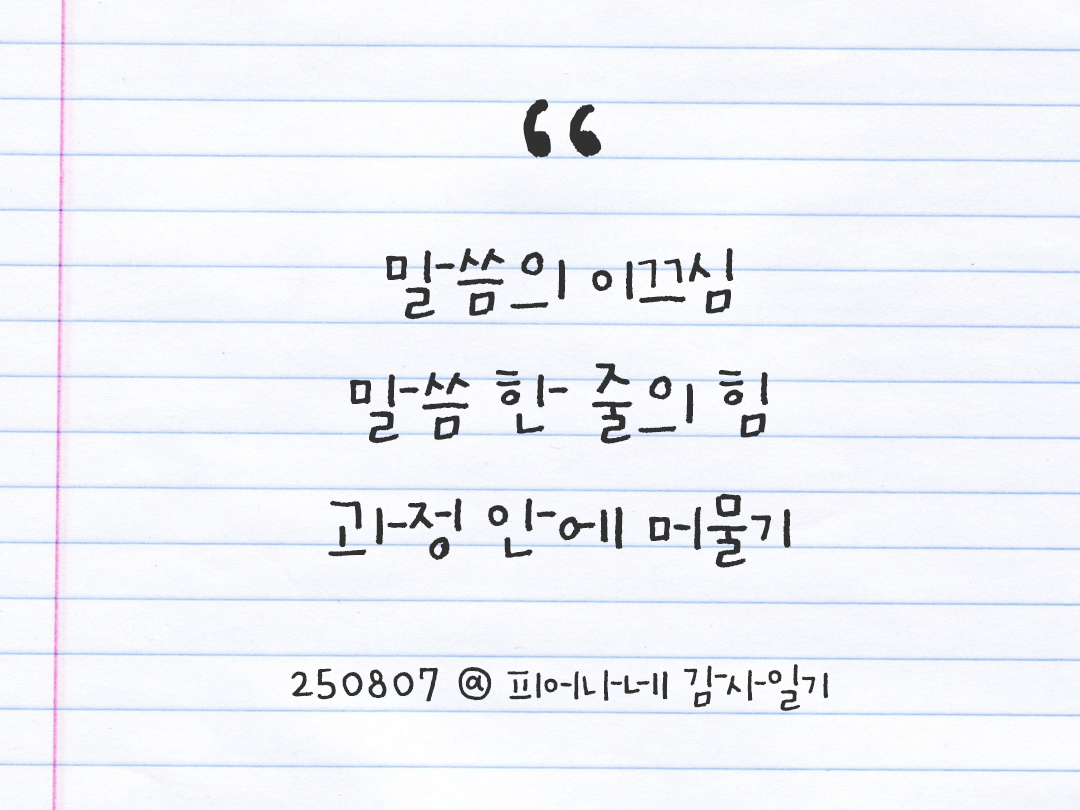 “
말씀의 이끄심
말씀 한 줄의 힘
과정 안에 머물기
250807 @ 피어나네 감사일기